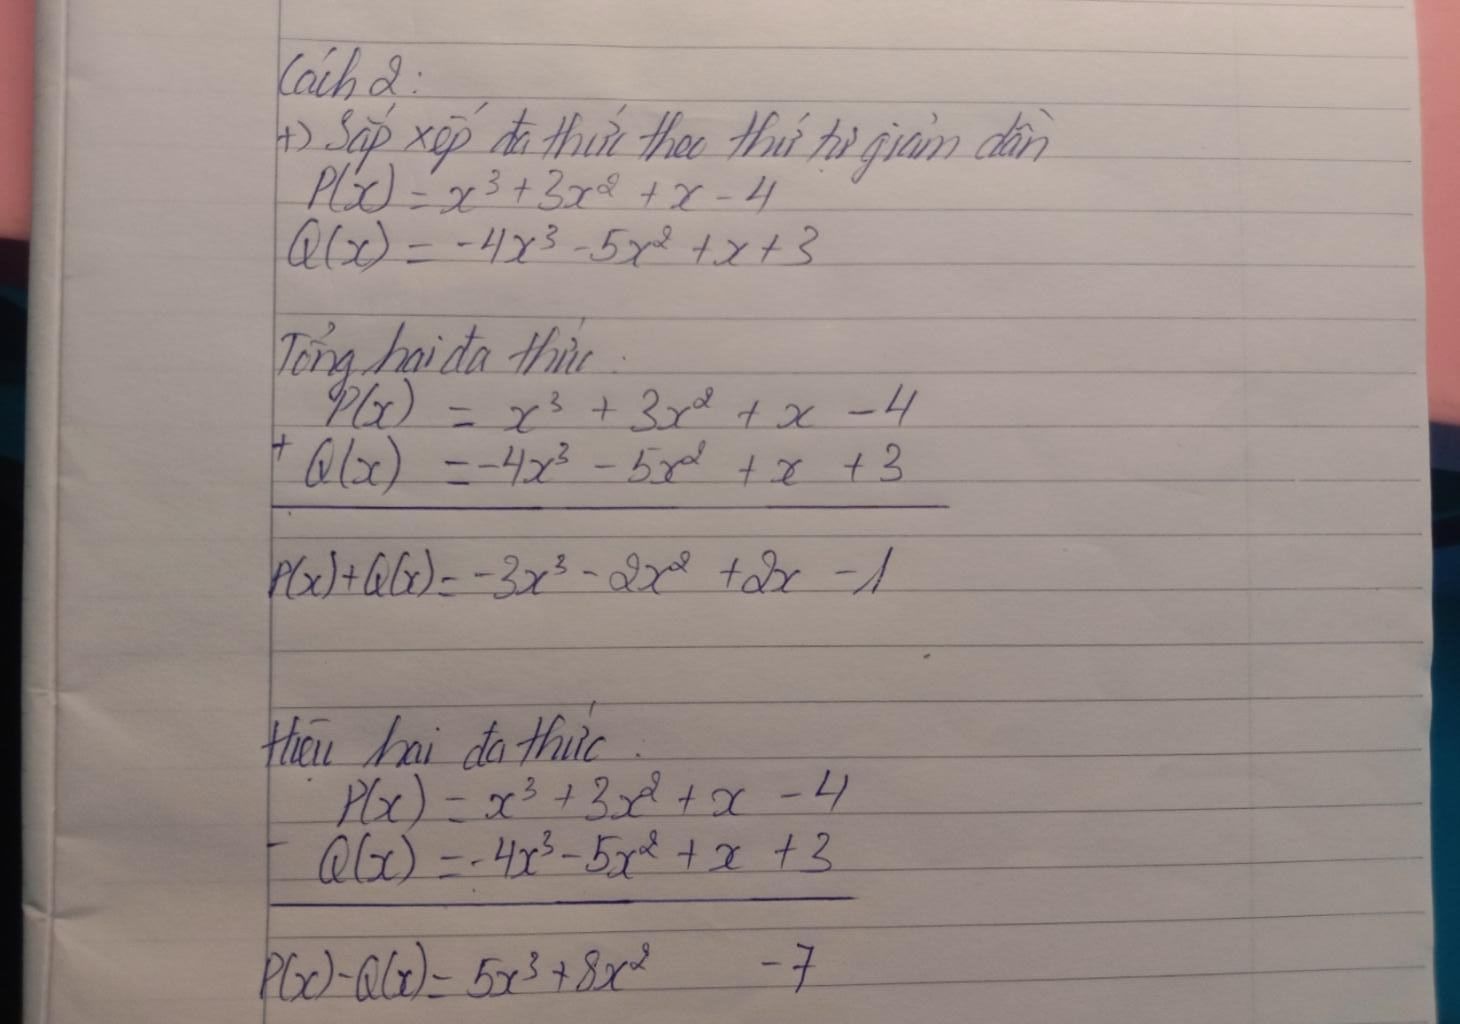 Cách 2:
+) Sắp xếp đa thức theo thứ tự giảm dần
P(x) = x³ + 3x² + x - 4
Q(x) = -4x³ - 5x² + x + 3
Tổng hai đa thức:
P(x) = x³ + 3x² + x - 4
+ Q(x) = -4x³ - 5x² + x + 3
P(x) + Q(x) = -3x³ - 2x² + 2x - 1
Hiệu hai đa thức:
P(x) = x³ + 3x² + x - 4
- Q(x) = -4x³ - 5x² + x + 3
P(x) - Q(x) = 5x³ + 8x² - 7